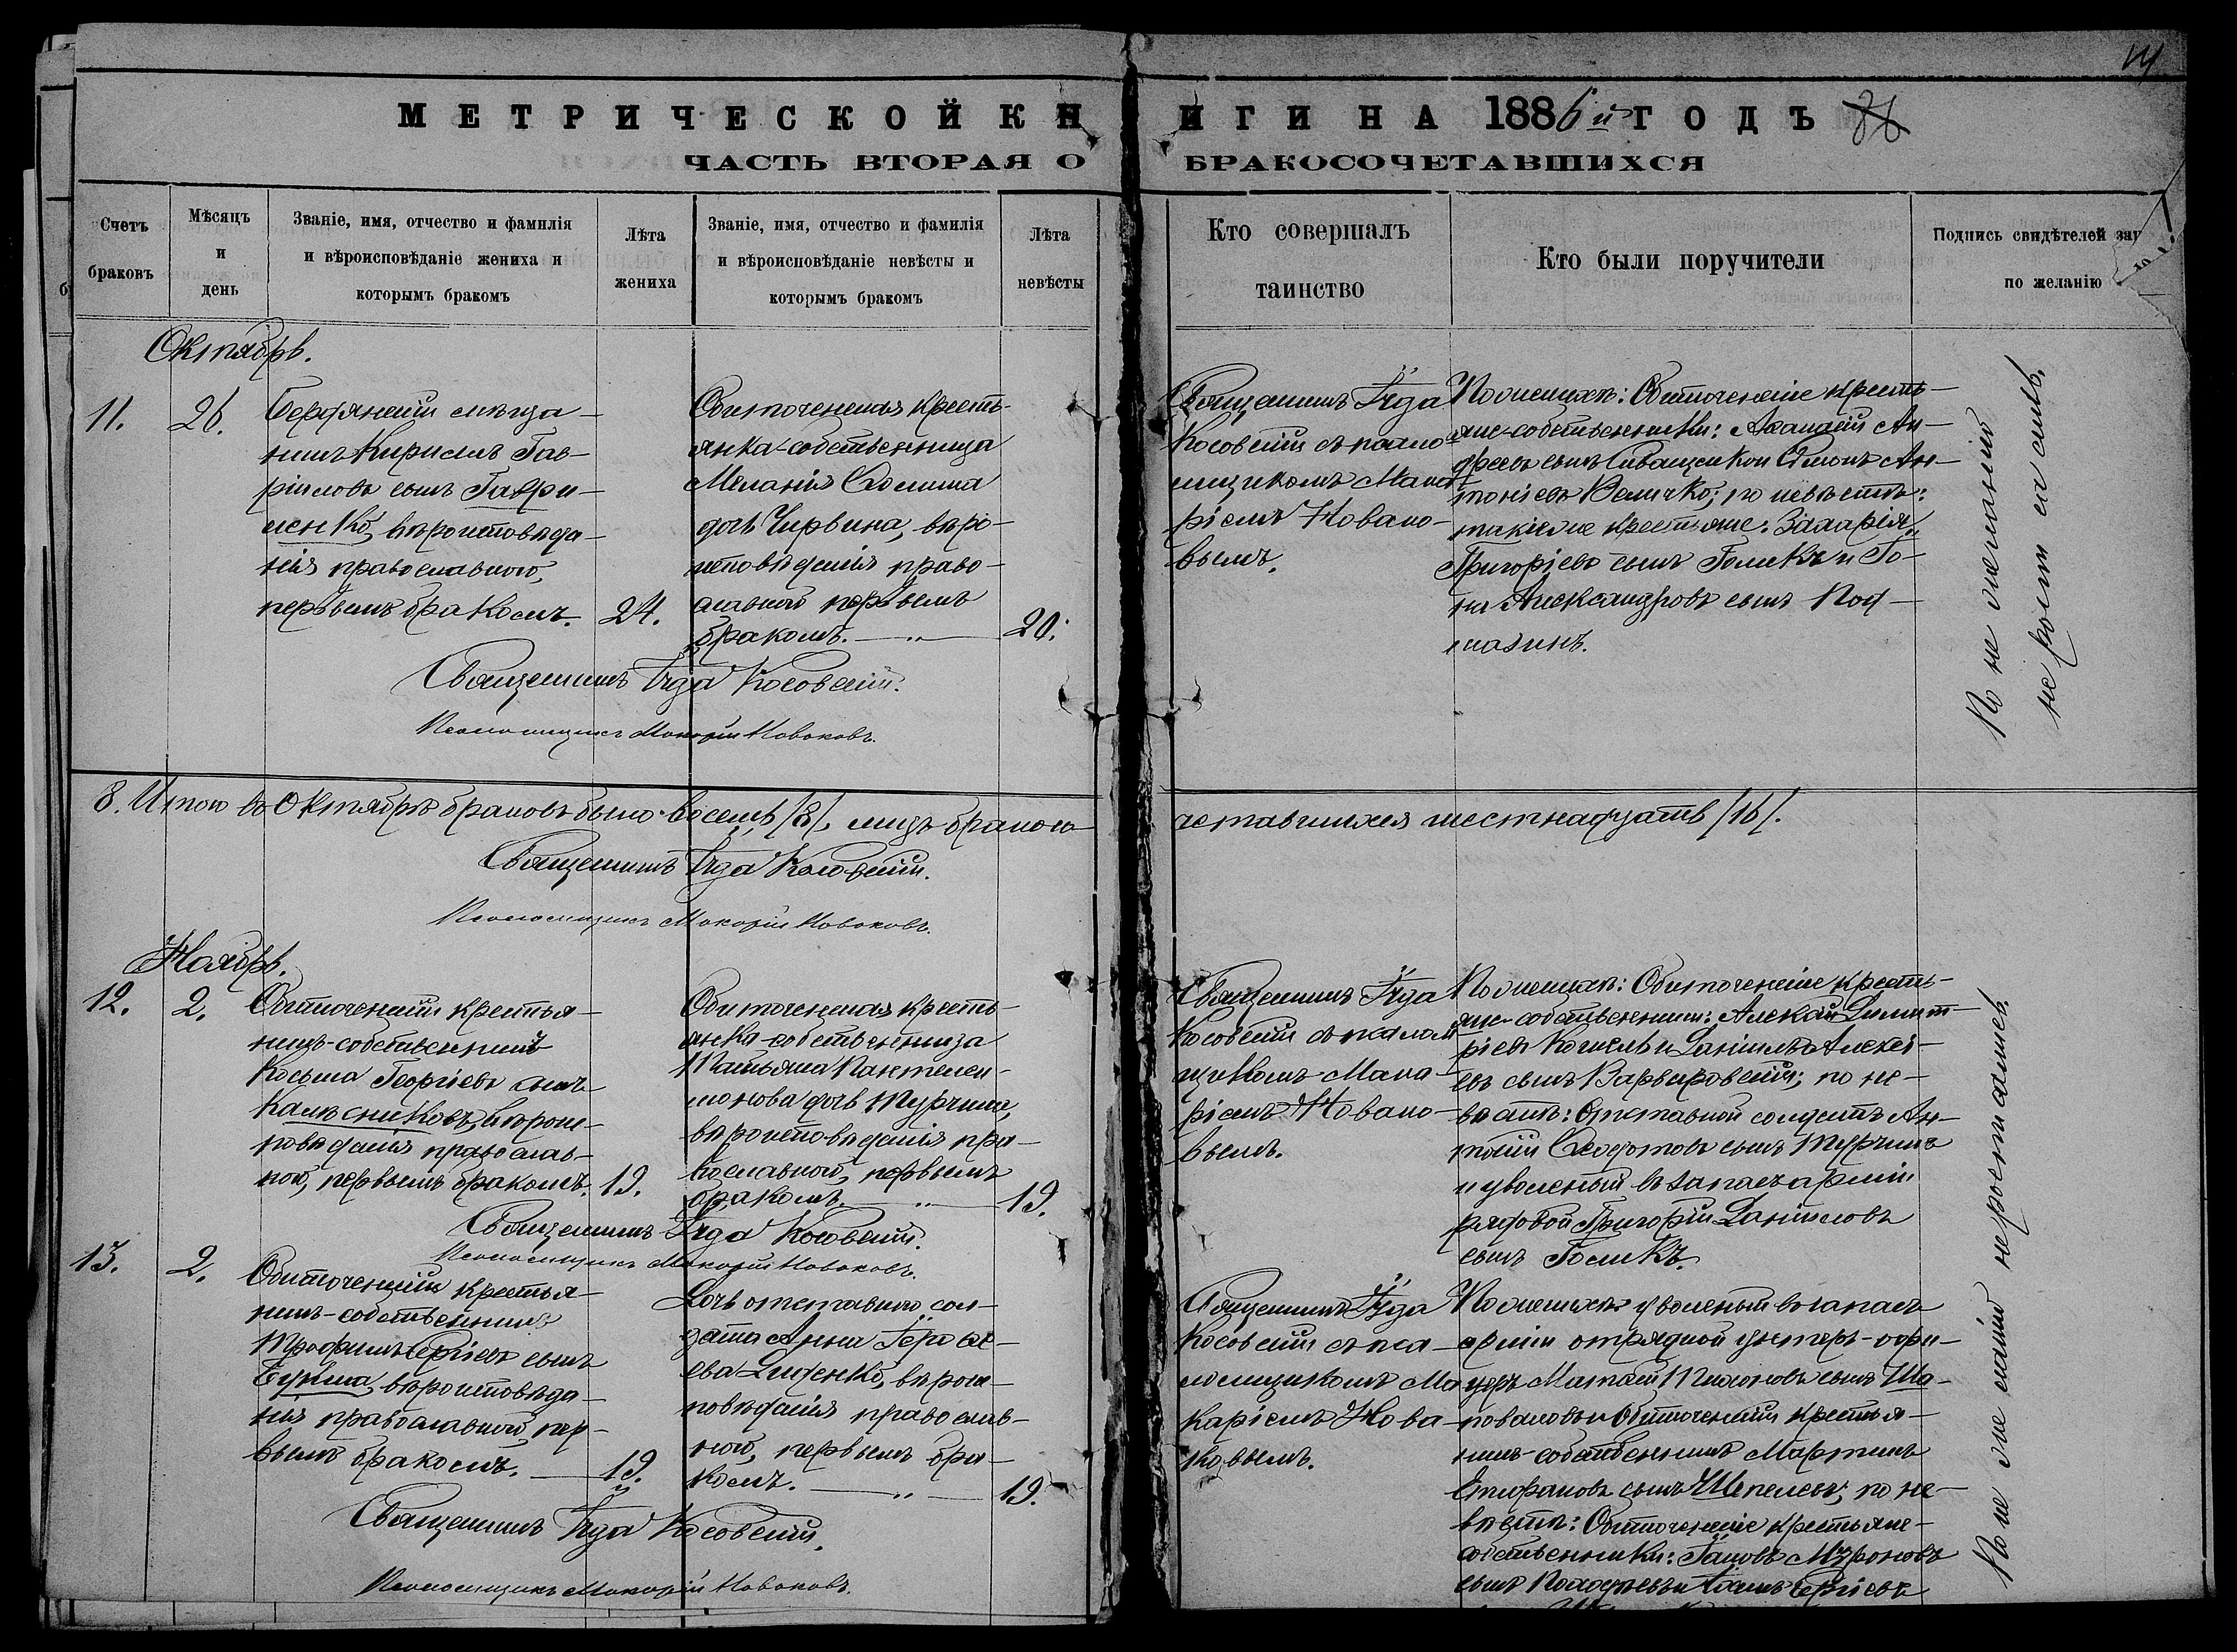 МЕТРИЧЕСКОЙ КНИГИ НА 1886й ГОДЪ
ЧАСТЬ ВТОРАЯ О БРАКОСОЧЕТАВШИХСЯ
Счетъ браковъ
Мѣсяцъ и день
Званіе, имя, отчество и фамилія
и вѣроисповѣданіе жениха и
которымъ бракомъ
Лѣта жениха
Званіе, имя, отчество и фамилія
и вѣроисповѣданіе невѣсты и
которымъ бракомъ
Лѣта невѣсты
Кто совершалъ
таинство
Кто были поручители
Подпись свидѣтелей
по желанію
Октябрь.
11.
26.
Бердянскій мѣща-
нинъ Кириллъ Гав-
ріиловъ сынъ Гаври-
ленко, вѣроисповѣда-
нія православнаго,
первымъ бракомъ.
24.
Обиточенская кресть-
янка-собственница
Меланія
дочь Чирвина, вѣро-
исповѣданія право-
славнаго первымъ
бракомъ.
20.
Священникъ Іуда
Косовскій съ псало-
мщикомъ Мака-
ріемъ Новако-
вымъ.
По женихѣ: Обиточенскіе кресть-
яне-собственники: Аѳанасій Ан-
дреевъ сынъ Иващенко и Симонъ Ан-
тоніевъ Величко; по невѣстѣ:
такіе же крестьяне: Захарія
Григоріевъ сынъ Голикъ и
Александровъ сынъ Под-
мазинъ.
По не желанію
не росписались.
Священникъ Іуда Косовскій.
Псаломщикъ Макарій Новаковъ.
8. Итого въ Октябрѣ браковъ было восемь /8/, лицъ бракосо-
четавшихся шестнадцать /16/.
Священникъ Іуда Косовскій.
Псаломщикъ Макарій Новаковъ.
Ноябрь.
12.
2.
Обиточенскій крестья-
нинъ-собственникъ
Косьма Георгіевъ сынъ
Калѣсниковъ, вѣроис-
повѣданія православ-
наго, первымъ бракомъ.
19.
Обиточенская кресть-
янка-собственница
Татьяна Пантелеи-
монова дочь Турчина,
вѣроисповѣданія пра-
вославнаго, первымъ
бракомъ.
19.
Священникъ Іуда
Косовскій съ псалом-
щикомъ Мака-
ріемъ Новако-
вымъ.
По женихѣ: Обиточенскіе кресть-
яне-собственники: Алексѣй Димит-
ріевъ Кошель и Даніилъ Алексѣ-
евъ сынъ Варваровскій; по не-
вѣстѣ: Отставной солдатъ Ан-
тоній Ѳеодотовъ сынъ Турчинъ
и уволенный въ запасъ арміи
рядовой Григорій Даніиловъ
сынъ Голикъ.
Священникъ Іуда Косовскій.
Псаломщикъ Макарій Новаковъ.
13.
2.
Обиточенскій крестья-
нинъ-собственникъ
Трофимъ Сергіевъ сынъ
Бурима, вѣроисповѣда-
нія православнаго, пер-
вымъ бракомъ.
19.
Дочь отставного сол-
дата Анна Герасі-
ева Диденко, вѣроис-
повѣданія православ-
наго, первымъ бра-
комъ.
19.
Священникъ Іуда
Косовскій съ пса-
ломщикомъ Ма-
каріемъ Нова-
ковымъ.
По женихѣ: уволенный въ запасъ
арміи отрядной унтеръ-офи-
церъ Матвій Тихоновъ сынъ Ша-
поваловъ и Обиточенскій крестья-
нинъ-собственникъ Мартинъ
Епифановъ сынъ Шепелевъ; по не-
вѣстѣ: Обиточенскіе крестьяне-
собственники: Іаковъ Мироновъ
сынъ и Сергіевъ
По не желанію не росписались.
Священникъ Іуда Косовскій.
Псаломщикъ Макарій Новаковъ.